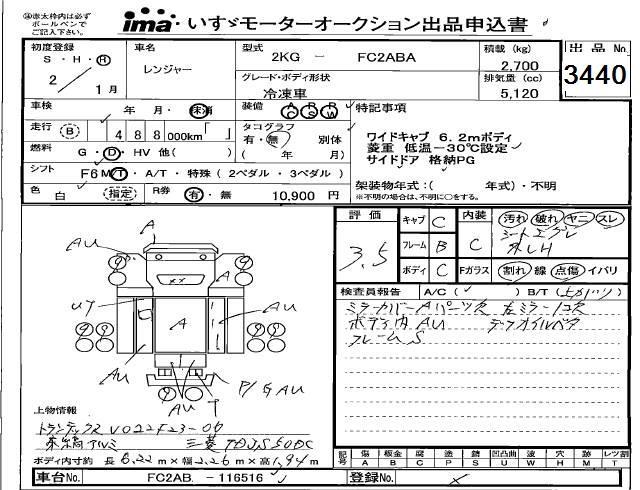 ※赤太枠内は必ず
ボールペンで
ご記入下さい。
ima いすゞモーターオークション出品申込書
初度登録
S・H・R
2 / 1月
車名
レンジャー
型式
2KG - FC2ABA
グレード・ボディ形状
冷凍車
積載 (kg)
2,700
排気量 (cc)
5,120
出品No.
3440
車検
年 月・抹消
装備
AC PS PW
特記事項
走行 (B) 488000km
タコグラフ
有・無 別体
( 年 月)
燃料
G・D・HV 他( )
シフト
F6 MT・A/T・特殊 (2ペダル・3ペダル)
色
白 (指定)
R券
有・無 10,900円
ワイドキャブ 6.2mボディ
菱重 低温-30℃設定
サイドドア 格納PG
架装物年式:( 年式)・不明
※不明の場合は、不明に○をする。
評価
3.5
キャブ C
フレーム B
ボディ C
内装 C
汚れ 破れ ヤニ スレ
Fガラス
割れ 線 点傷 イバリ
検査員報告 A/C( ) B/T( )
ミラーカバーAパーツ欠 左ミラーコス
ボディ内AU デフオイルベタ
フレームS
A
AU
AU
A
A
AU
AU
AU
AU
T
P/G AU
上物情報
トランテックス V022F23-06
東編アルミ 三菱 TDJS50DC
ボディ内寸約 長6.22m×幅2.26m×高1.94m
記号
傷 板金 塗 錆 凸凹曲 波 穴 跡 レツ割
A B C P S U W H M T
車台No. FC2AB. - 116516
登録No.